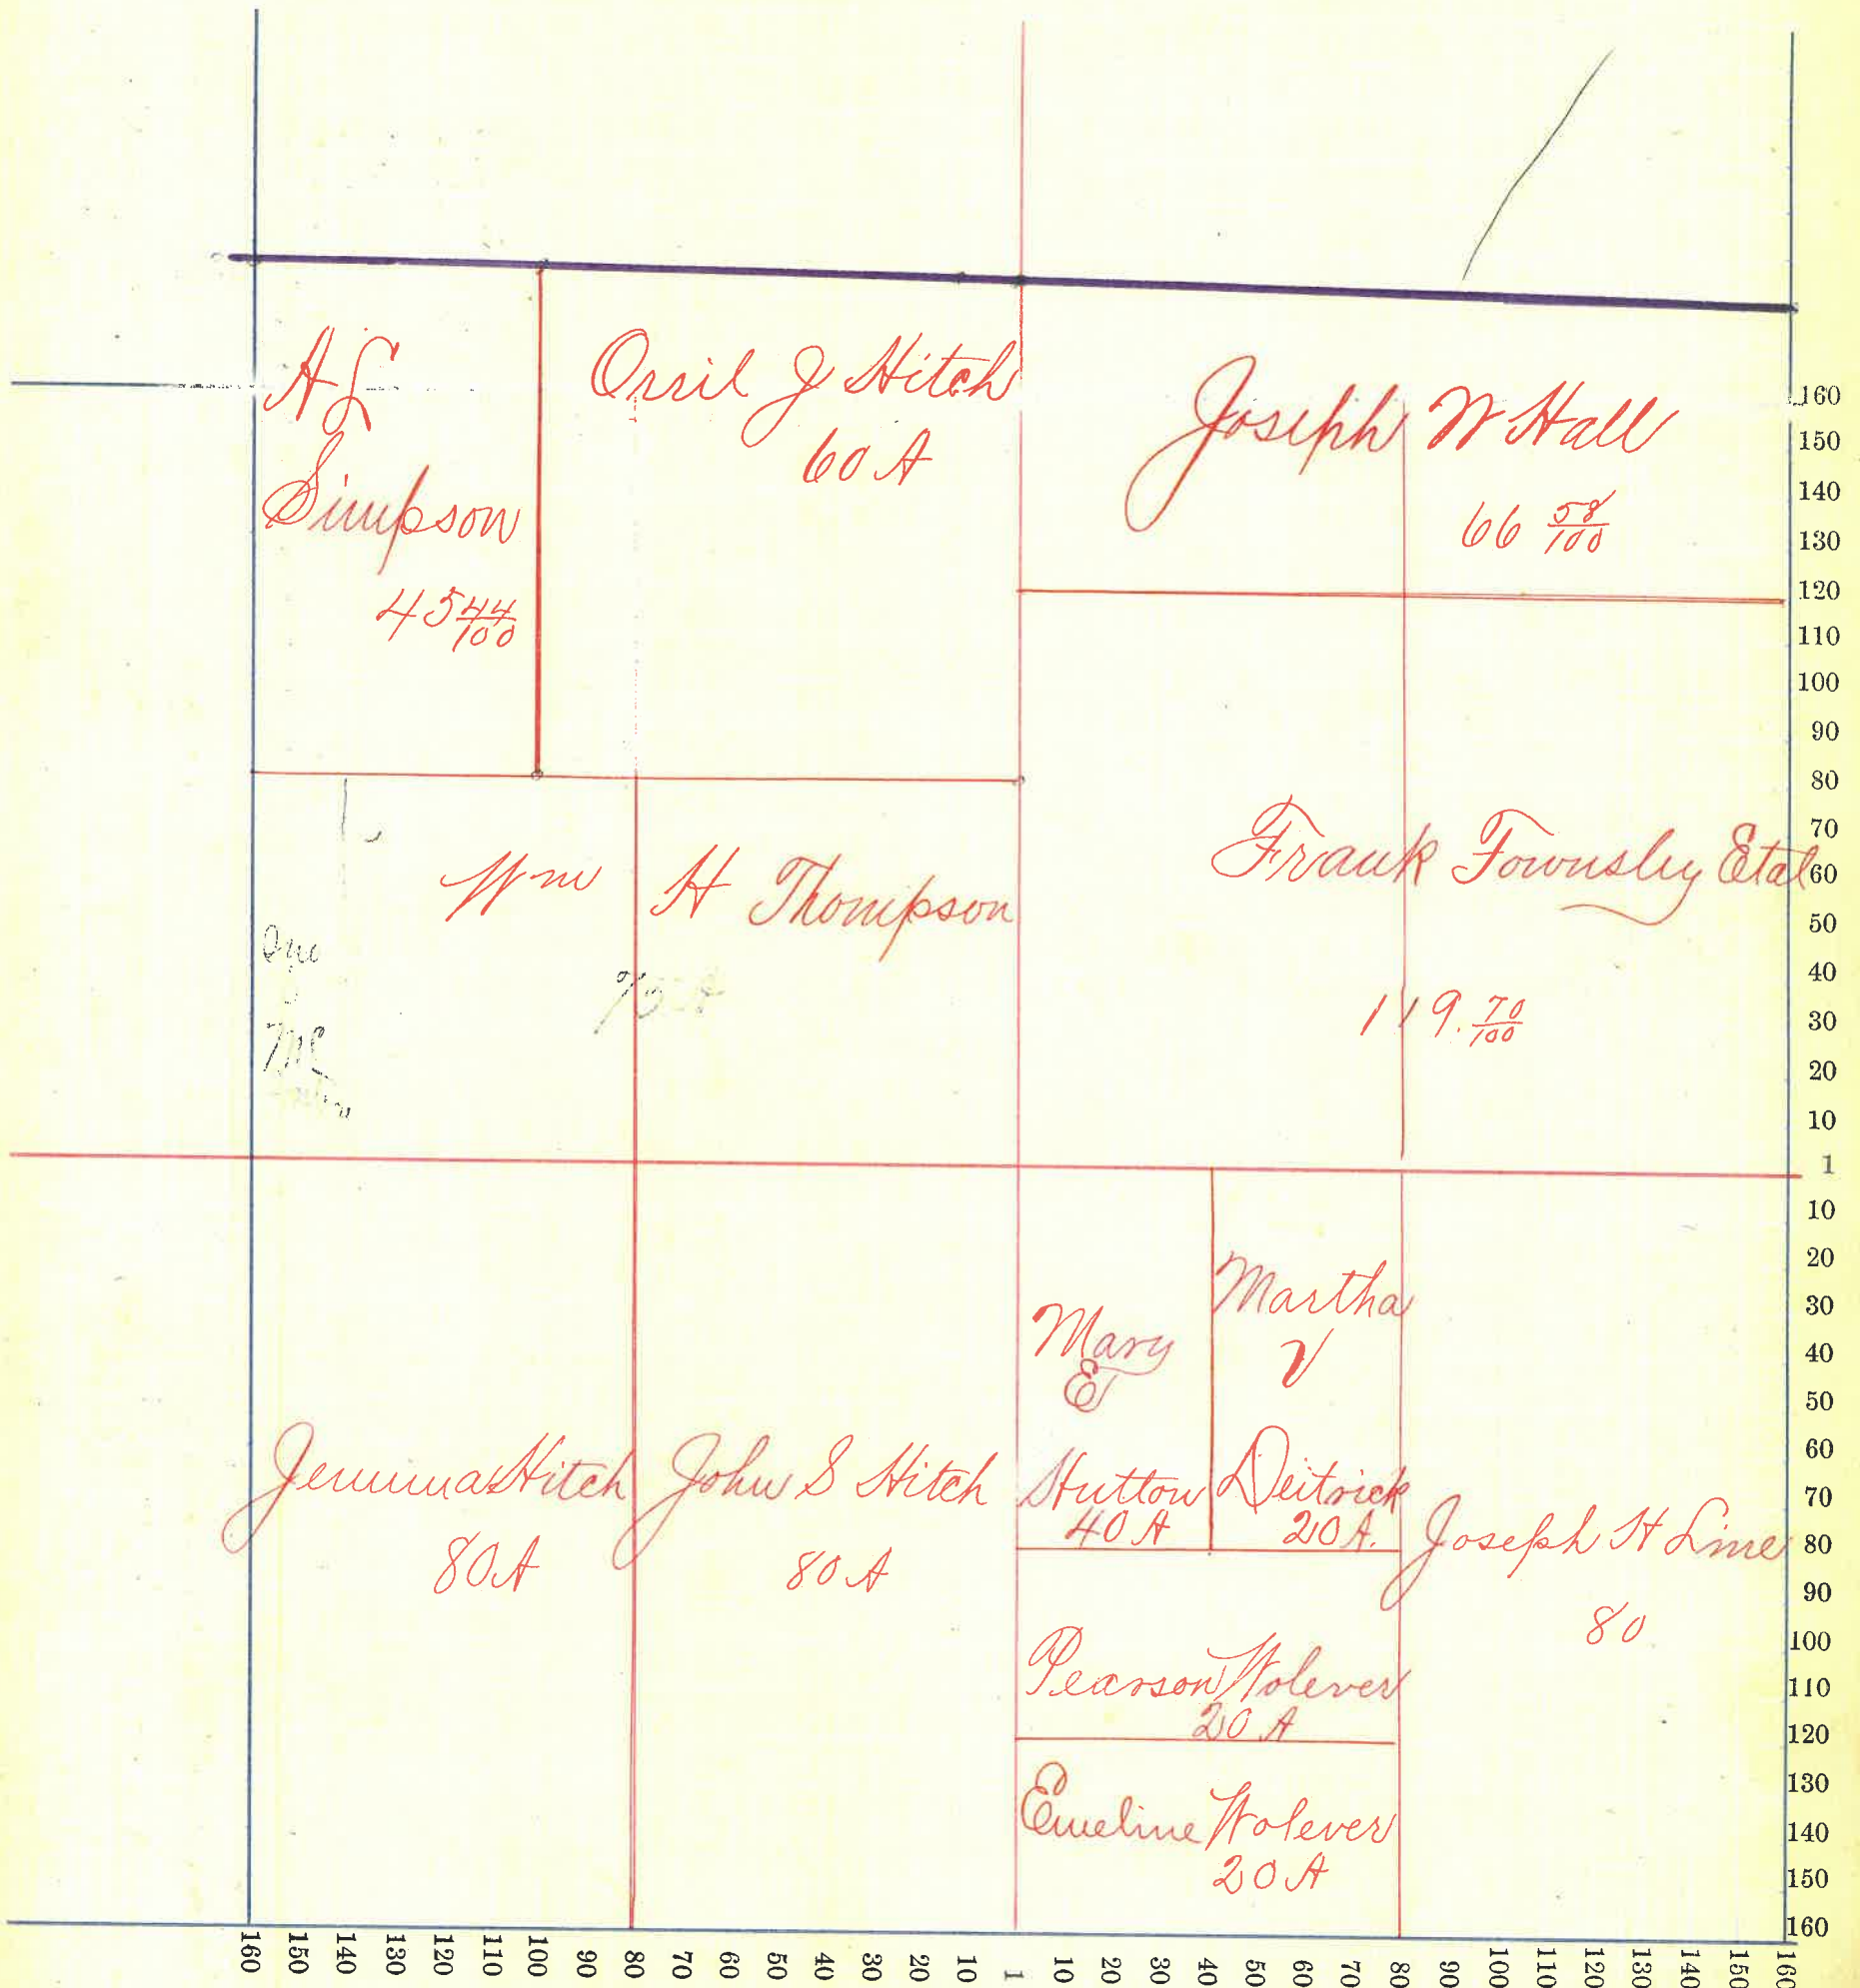 A L
Simpson
45 44/100
Orril J Hitch
60 A
Joseph W Hall
66 58/100
Wm H Thompson
Frank Townsley Etal
119. 70/100
Jemima Hitch
80 A
John S Hitch
80 A
Mary
E
Hutton
40 A
Martha
V
Deitrick
20 A.
Pearson Wolever
20 A
Emeline Wolever
20 A
Joseph H Line
80
160
150
140
130
120
110
100
90
80
70
60
50
40
30
20
10
1
10
20
30
40
50
60
70
80
90
100
110
120
130
140
150
160
160 150 140 130 120 110 100 90 80 70 60 50 40 30 20 10 1 10 20 30 40 50 60 70 80 90 100 110 120 130 140 150 160